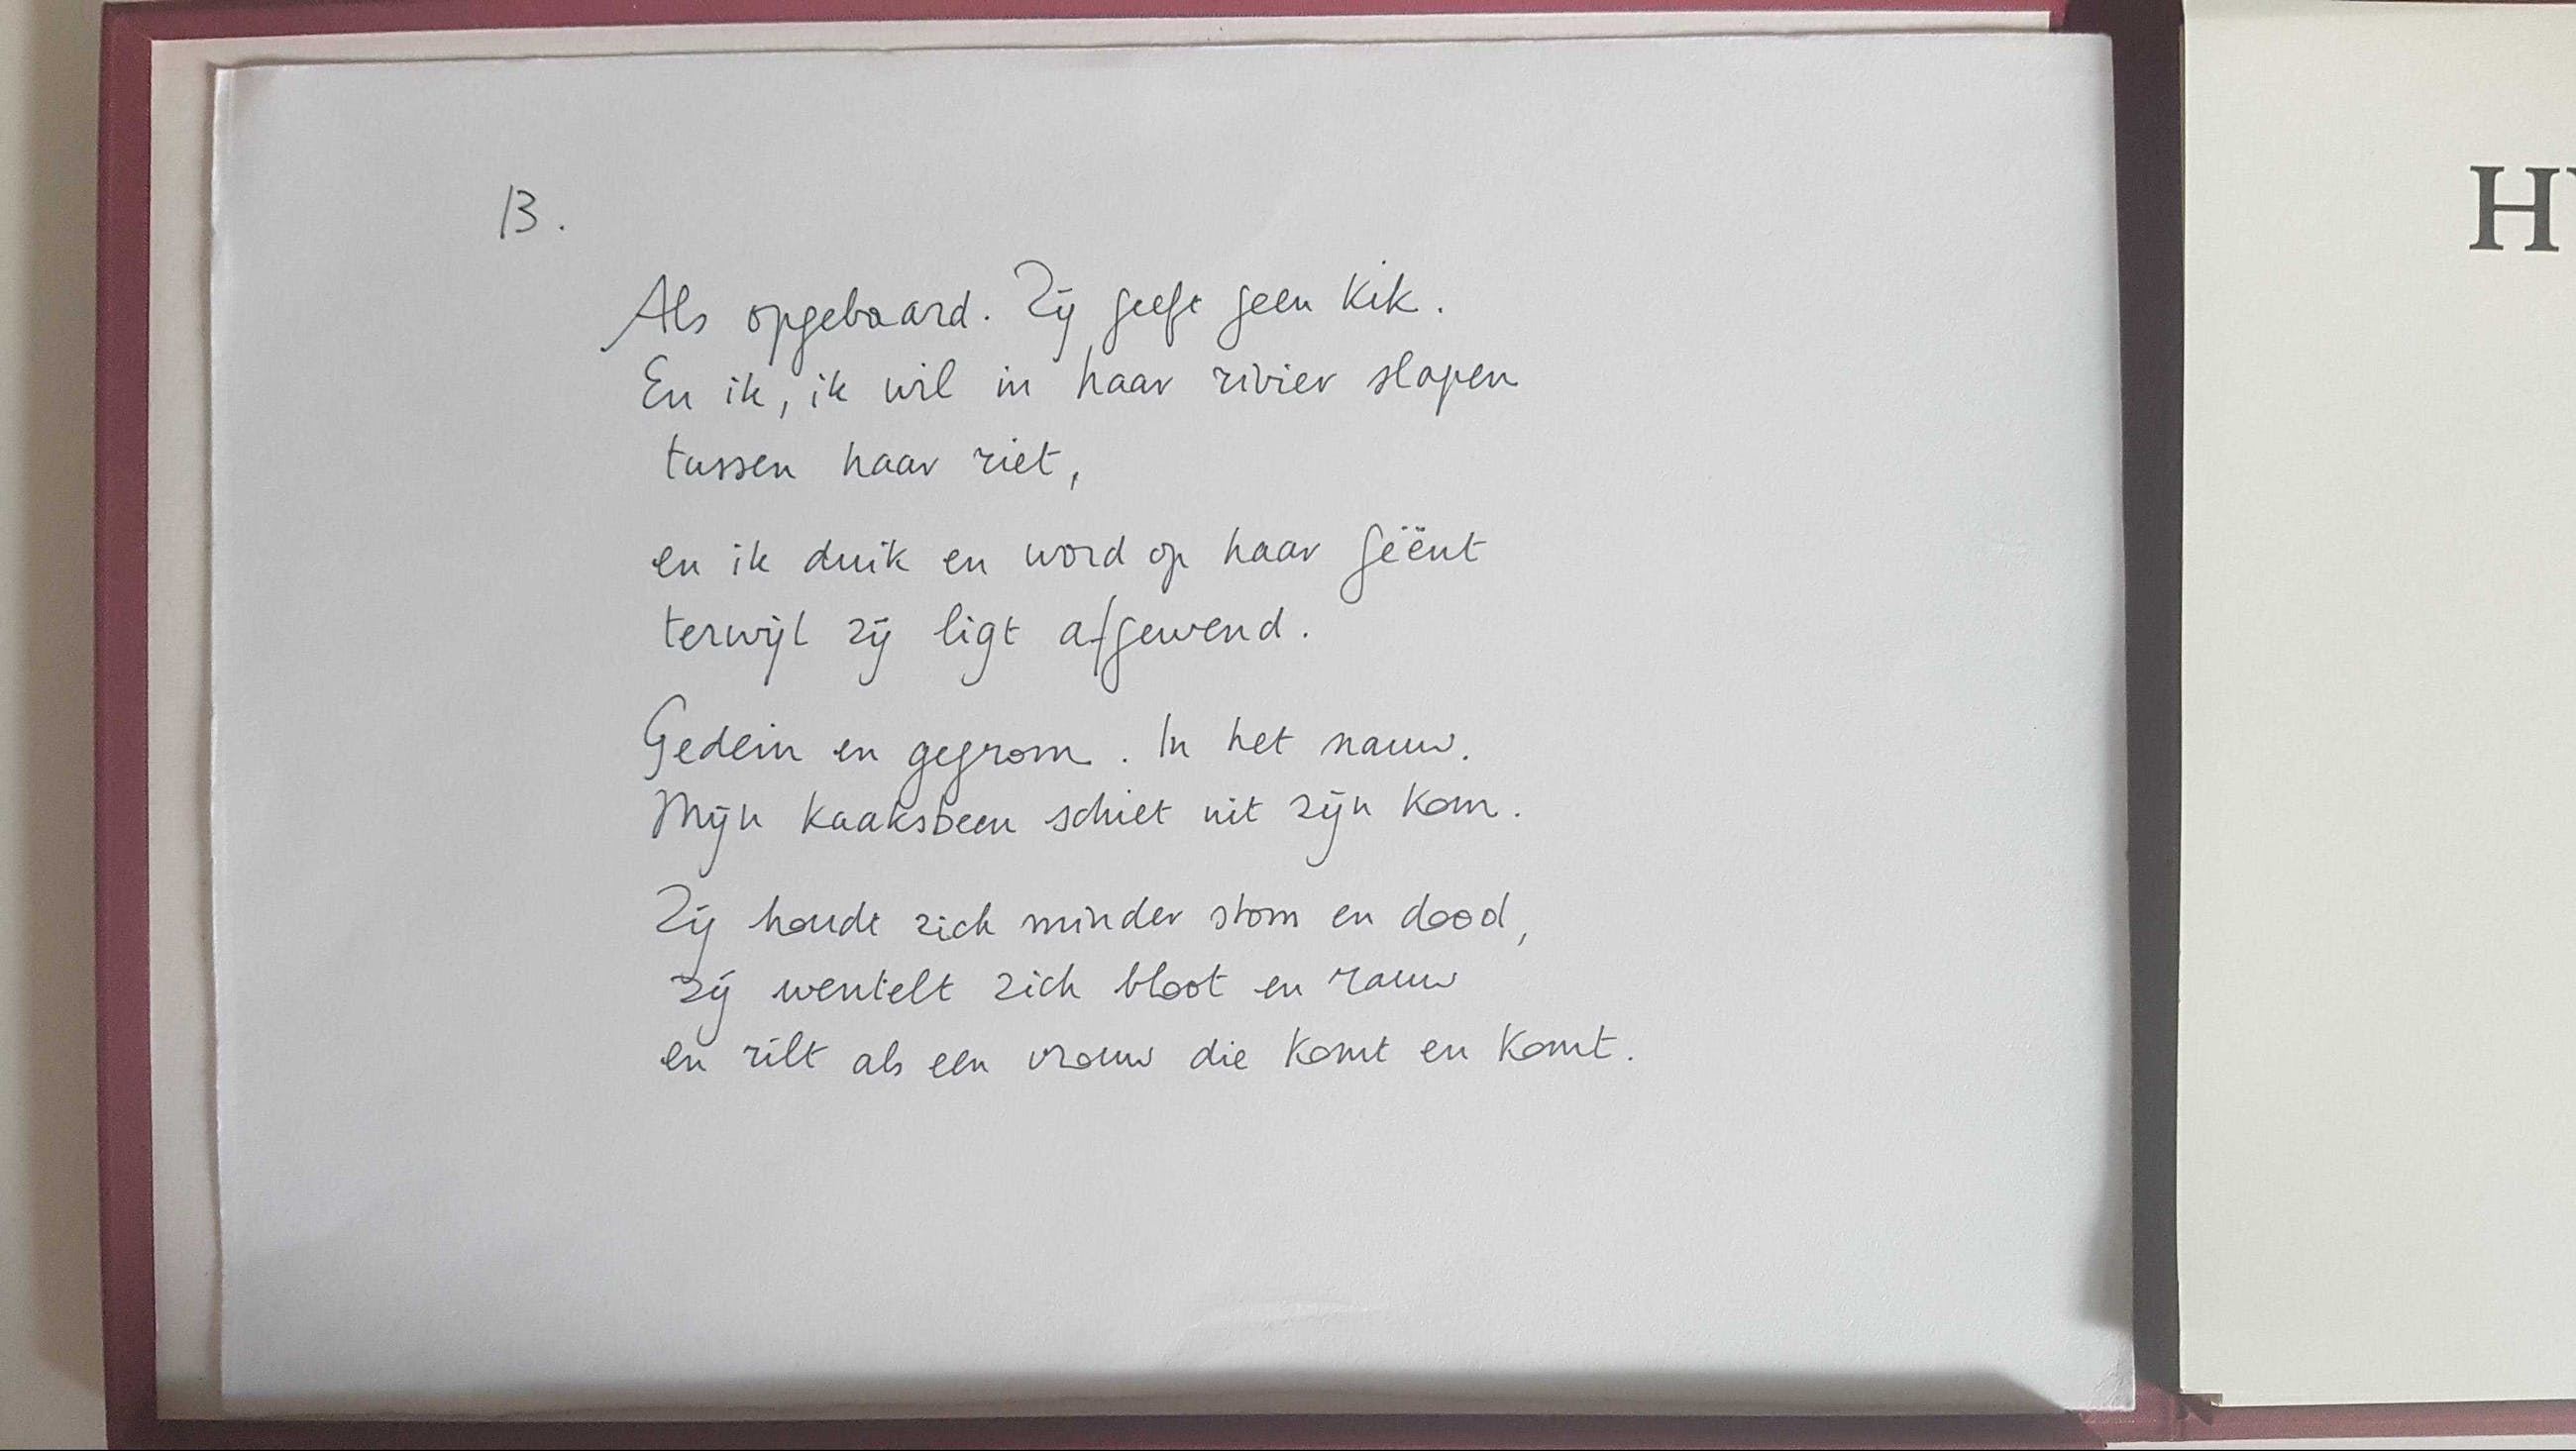 13.
Als opgebaard. Zij geeft geen kik.
En ik, ik wil in haar rivier slapen
tussen haar riet,
en ik duik en word op haar geënt
terwijl zij ligt afgewend.
Gedein en gegrom. In het nauw.
Mijn kaaksbeen schiet uit zijn kom.
Zij houdt zich minder stom en dood,
zij wentelt zich bloot en rauw
en rilt als een vrouw die komt en komt.
H